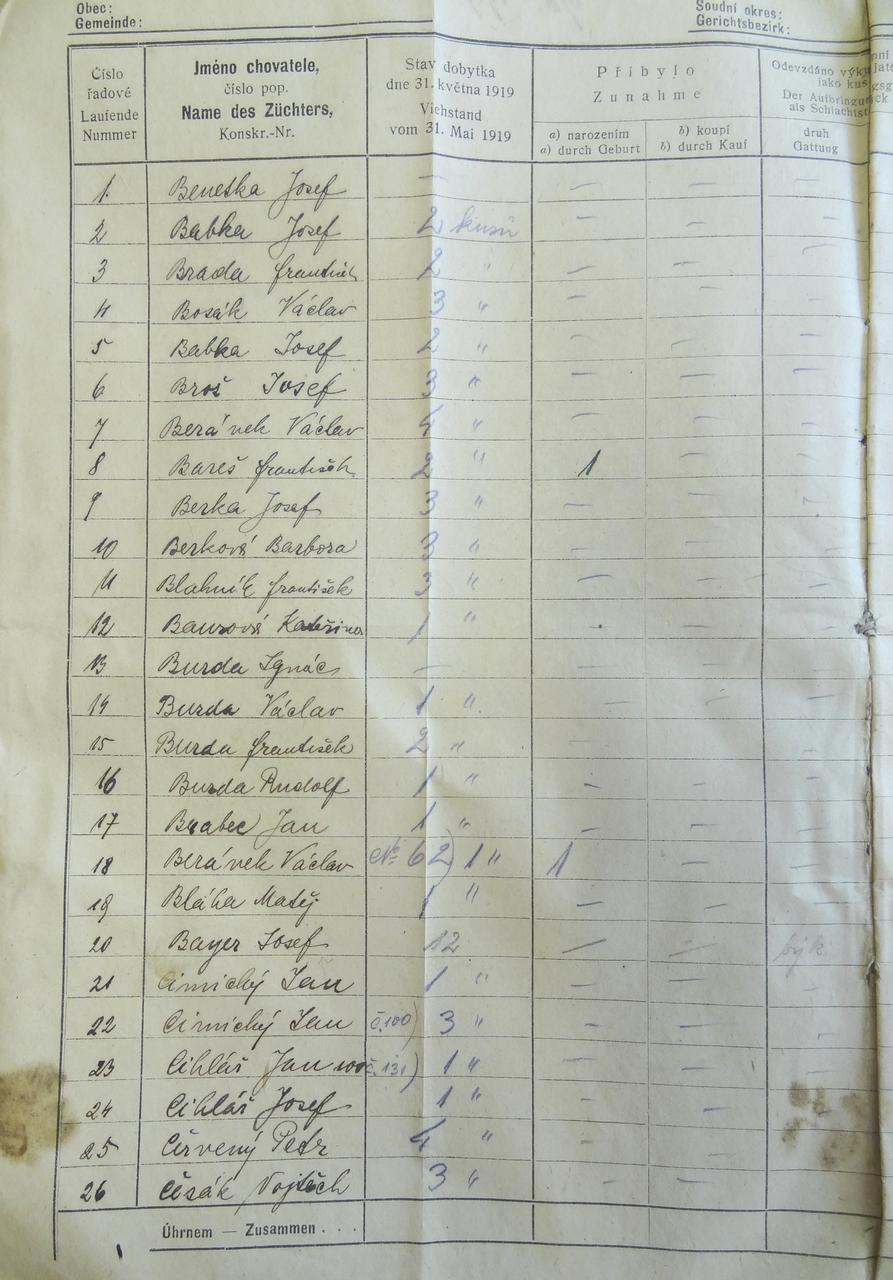 Obec:
Gemeinde:
Soudní okres:
Gerichtsbezirk:
Číslo řadové Laufende Nummer
Jméno chovatele, číslo pop. Name des Züchters, Konskr.-Nr.
Stav dobytka dne 31. května 1919 Viehstand vom 31. Mai 1919
Přibylo Zunahme
a) narozením a) durch Geburt
b) koupí b) durch Kauf
Odevzdáno jako kus Der als
druh Gattung
1 Benetka Josef — — — —
2 Babka Josef 2 kusů — — —
3 Brada František 2 " — — —
4 Bosák Václav 3 " — — —
5 Babka Josef 2 " — — —
6 Brož Josef 3 " — — —
7 Beránek Václav 4 " — — —
8 Bareš František 2 " 1 — —
9 Berka Josef 3 " — — —
10 Berková Barbora 3 " — — —
11 Blahník František 3 " — — —
12 Kateřina 1 " — — —
13 Burda Ignác — — — —
14 Burda Václav 1 " — — —
15 Burda František 2 " — — —
16 Burda Rudolf 1 " — — —
17 Brabec Jan 1 " — — —
18 Beránek Václav No 62) 1 " 1 — —
19 Bláha Matěj 1 " — — —
20 Bayer Josef 12 — — býk
21 Cimický Jan 1 " — — —
22 Cimický Jan č.100) 3 " — — —
23 Cihlář Jan č.131) 1 " — — —
24 Cihlář Josef 1 " — —
25 Červený Petr 4 " — —
26 Čížák Vojtěch 3 " — — —
Úhrnem — Zusammen . . .